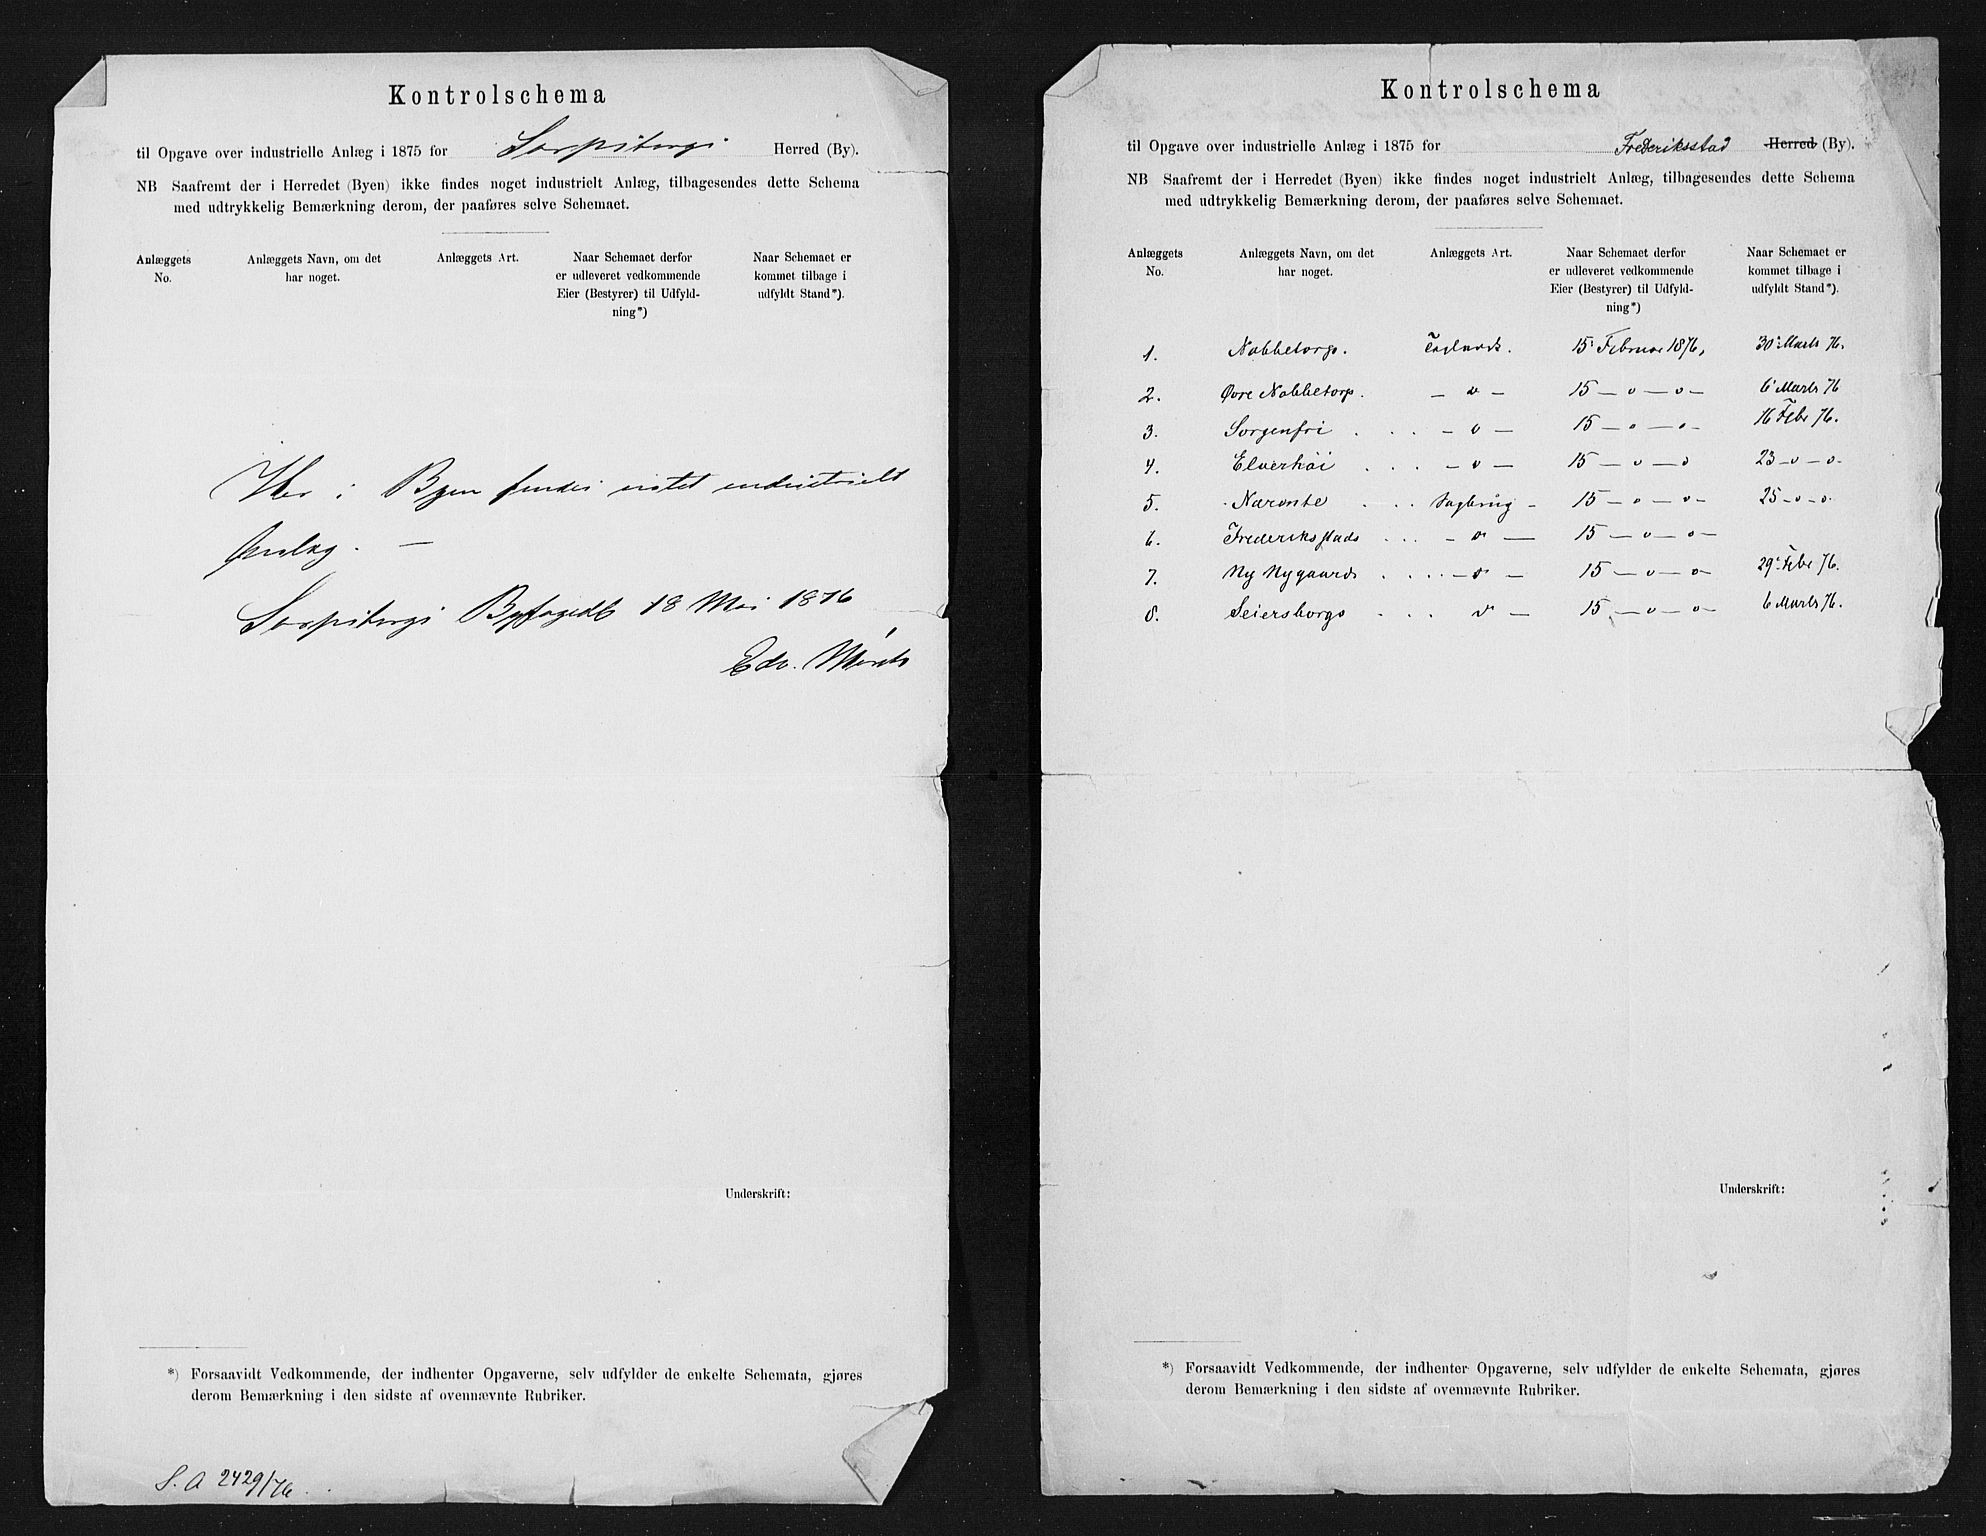 Kontrolschema
til Opgave over industrielle Anlæg i 1875 for Sarpsborgs Herred (By).
NB Saafremt der i Herredet (Byen) ikke findes noget industrielt Anlæg, tilbagesendes dette Schema
med udtrykkelig Bemærkning derom, der paaføres selve Schemaet.
Anlæggets No. Anlæggets Navn, om det har noget. Anlæggets Art. Naar Schemaet derfor er udleveret vedkommende Eier (Bestyrer) til Udfyldning*) Naar Schemaet er kommet tilbage i udfyldt Stand*).
Her i Byen findes intet industrielt
Anlæg. —
Sarpsborgs Byfogedk 18 Mai 1876
Edv.
Underskrift:
*) Forsaavidt Vedkommende, der indhenter Opgaverne, selv udfylder de enkelte Schemata, gjøres
derom Bemærkning i den sidste af ovennævnte Rubriker.
S. A 2429/76
Kontrolschema
til Opgave over industrielle Anlæg i 1875 for Frederiksstad Herred (By).
NB Saafremt der i Herredet (Byen) ikke findes noget industrielt Anlæg, tilbagesendes dette Schema
med udtrykkelig Bemærkning derom, der paaføres selve Schemaet.
Anlæggets No. Anlæggets Navn, om det har noget. Anlæggets Art. Naar Schemaet derfor er udleveret vedkommende Eier (Bestyrer) til Udfyldning*) Naar Schemaet er kommet tilbage i udfyldt Stand*).
1. Nabbetorp. Teglværk. 15 Februar 1876, 30 Marts 76.
2. Øvre Nabbetorp. — o — 15 — o — o — 6 Marts 76
3. Sorgenfri . . . — o — 15 — o — o — 16 Febr 76.
4. Elverhöi . . . — o — 15 — o — o 23 — o — o.
5. . . . Sagbrug — 15 — o — o — 25 — o — o.
6. Frederiksstads . . . — o — 15 — o — o —
7. Ny Nygaards . . . . — o — 15 — o — o — 29 Febr 76.
8. Seiersborgs . . . o — 15 — o — o — 6 Marts 76.
Underskrift:
*) Forsaavidt Vedkommende, der indhenter Opgaverne, selv udfylder de enkelte Schemata, gjøres
derom Bemærkning i den sidste af ovennævnte Rubriker.